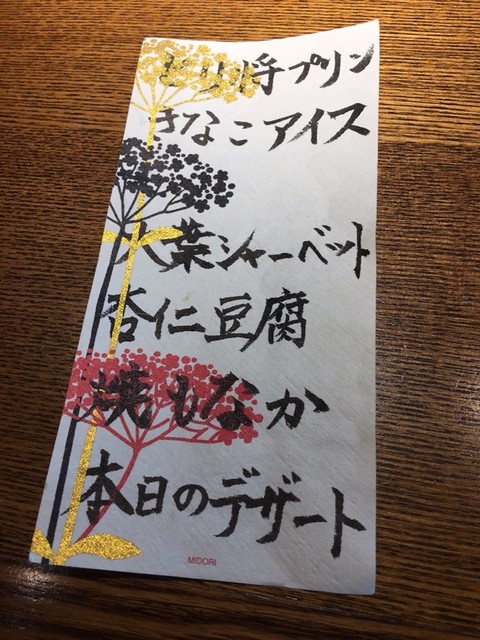 とり将プリン
きなこアイス
大葉シャーベット
杏仁豆腐
焼もなか
本日のデザート
MIDORI